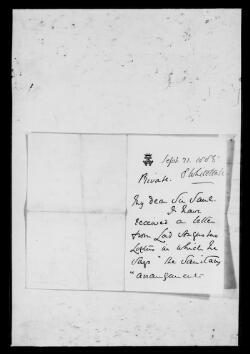 Sept 21. 1868
Private. 8 Whitehall
My dear Sir Saul.
I have
received a letter
from Lord Augustus
Loftus in which he
says "the Sanitary
"arrangements